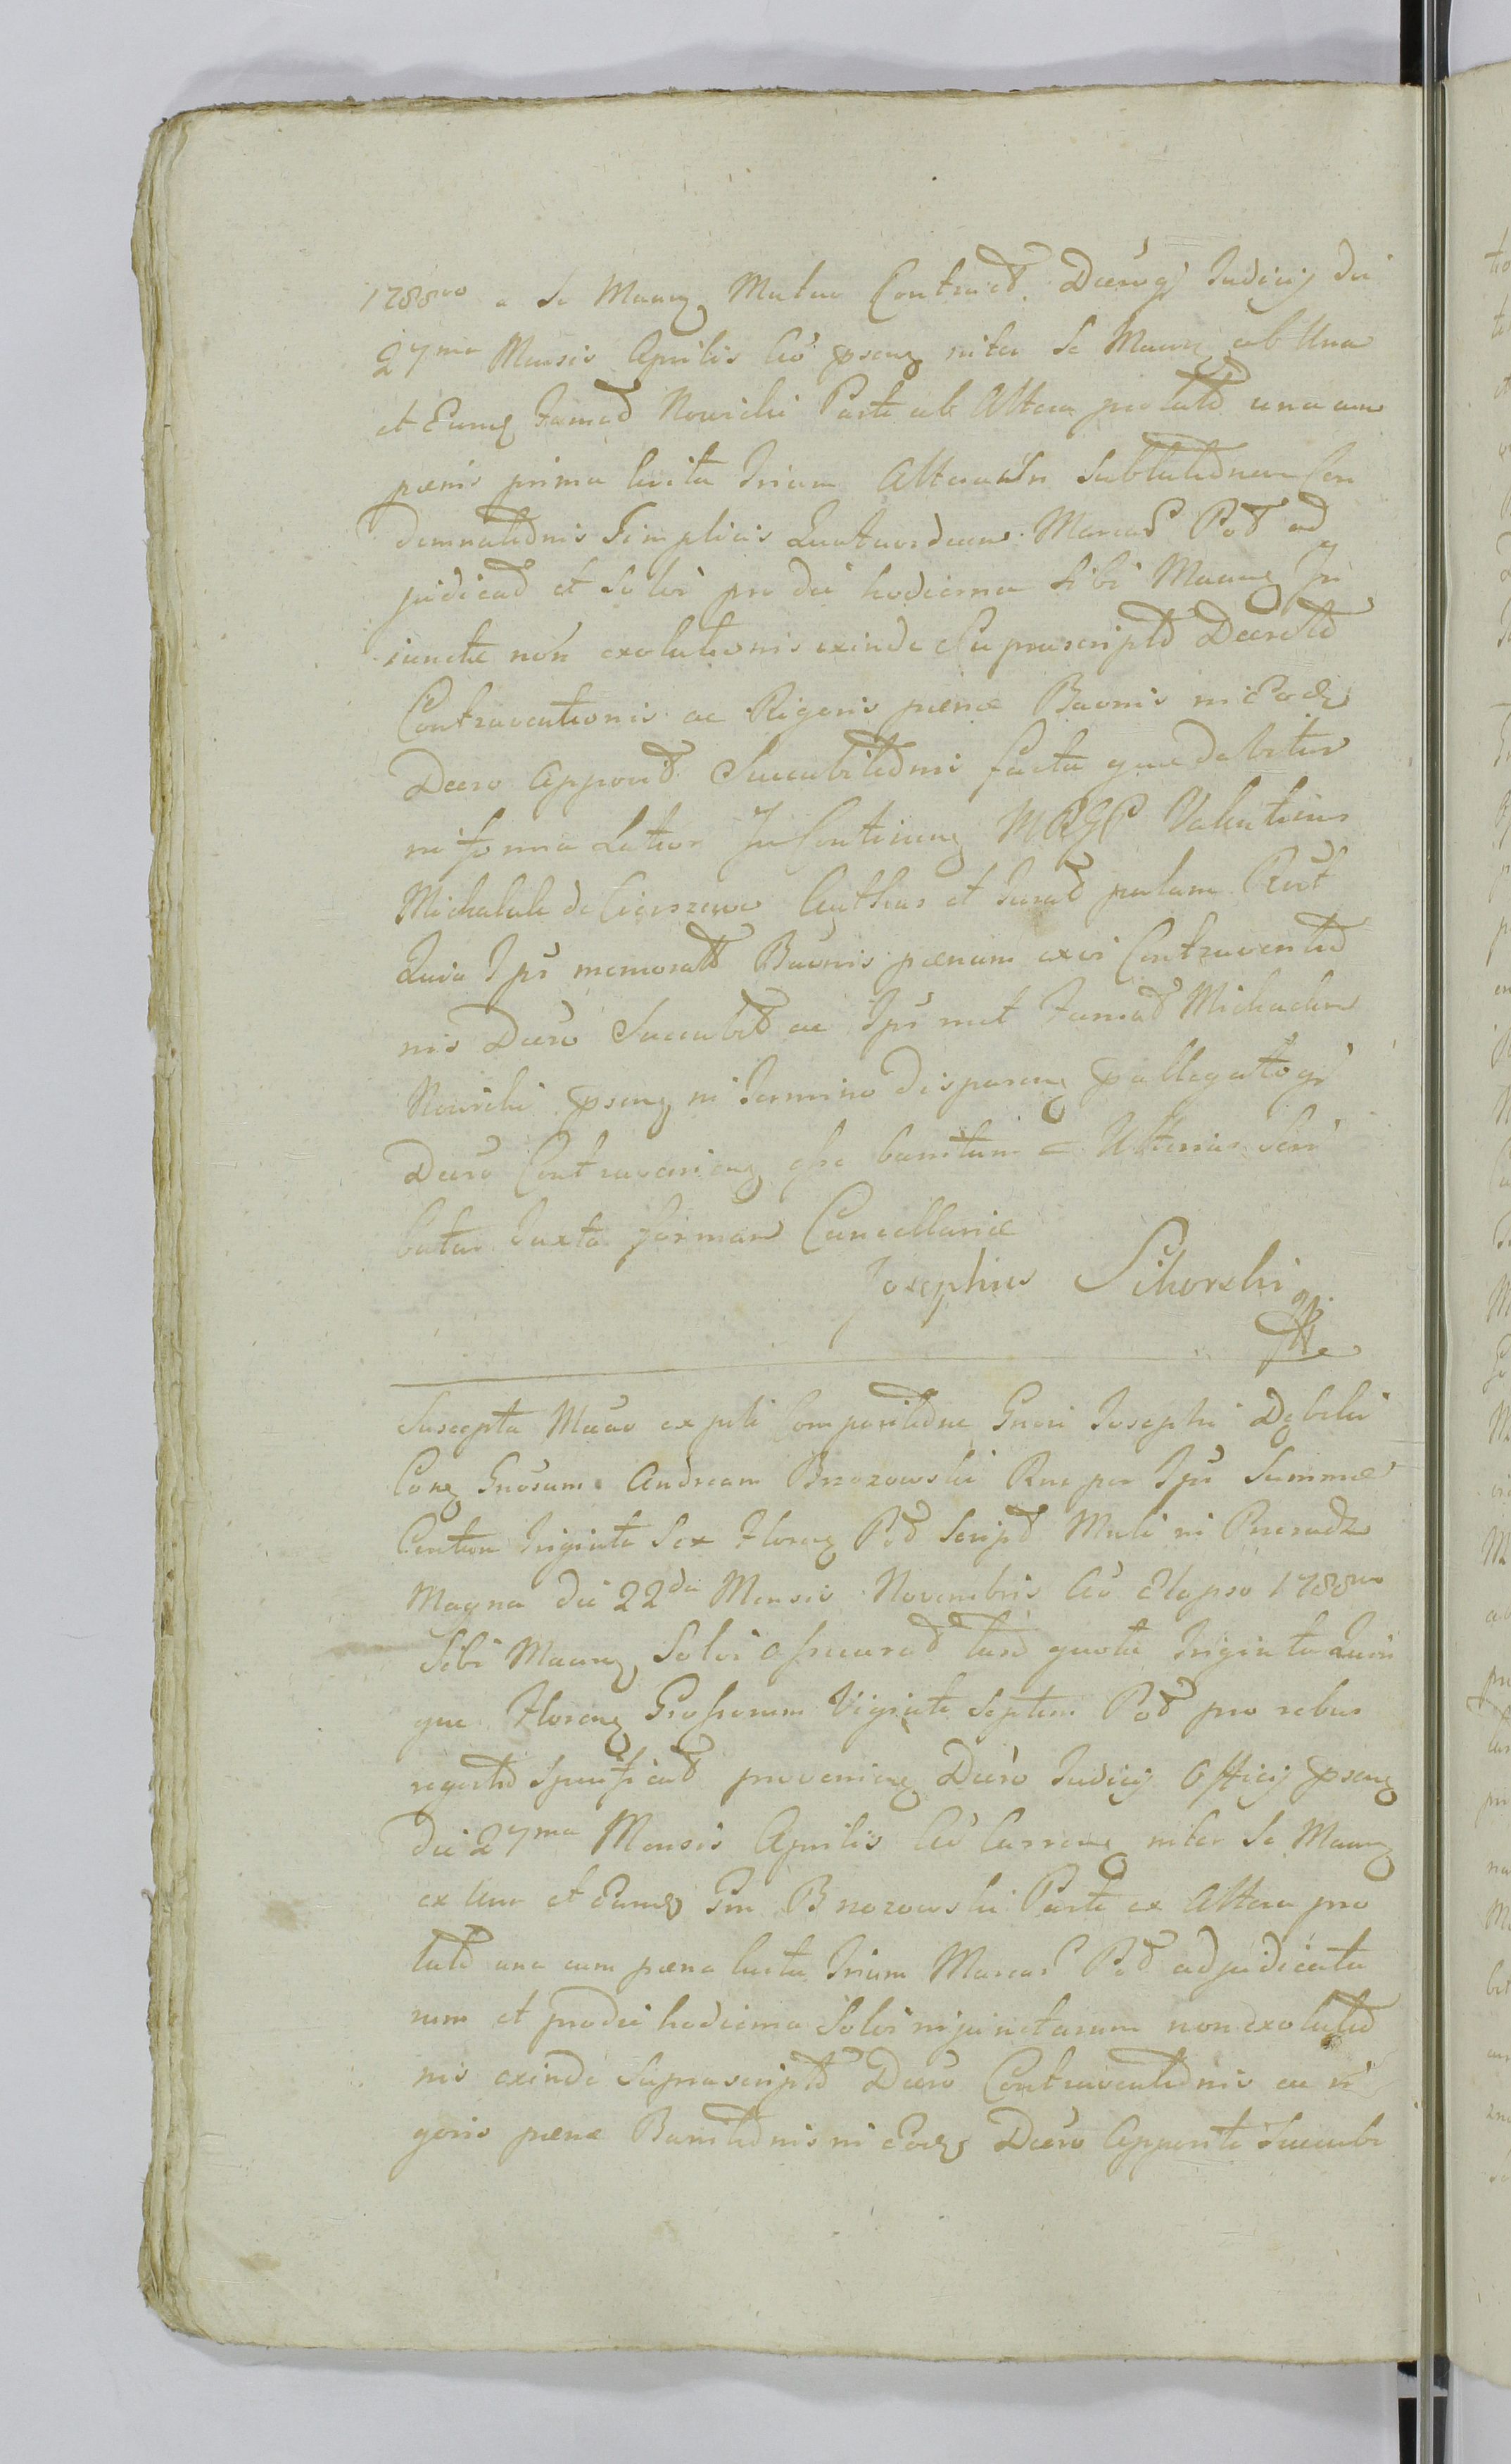 1788vo a Se Manẽ Mutuo Contract. Decroq Judicij die
27ma Mensis Aprilis Ao psenẽ inter Se Manẽ ab Una
et Eumẽ Famat Nowicki Parte ab Altera prolat una cum
pænis prima luita Trium Altera Subluitionem Con
demnationis Simplicis Quatuordecim Marcar Pol ad
judicat et Solvi pro die hodierna Sibi Manẽ In
iuncta non exolutionis exinde Suprascript Decret
Contraventionis ac Rigoris pænæ Baonis in Eodẽ
Decro Apposit Succubitionis facta quæ dabitur
in forma Lutior In Continenẽ Valentinus
Michalak de Cierszewo Authus et Jurat palam Rect
Quia Ipse memorat Baonis pænam ex vi Contraventio
nis Decro Succubit ac Ipsmet Famat Michaelem
Nowicki psenẽ in Termino disparenẽ pallegatoqe
Decro Contravenienẽ esse banitum = Ulterius scri
batur Juxta formam Cancellariæ
Josephus Sikorski
Suscepta Mano ex parte Comparitione Gnosi Josephi Dębski
Conẽ Gnosum Andream Brzozowski Rne per Ips Summæ
Centum Triginta Sex Florenẽ Pol Script Muli in
Magna die 22da Mensis Novembris Ao Elapso 1788vo
Sibi Manẽ Solvi assecurat tum quota Triginta Quin
que Florenẽ Grossorum Viginti Septem Pol pro rebus
regesto Specificat provenienẽ Decro Judicij Officij psenẽ
die 27ma Mensis Aprilis Ao Currenẽ inter Se Manẽ
ex Una et Eumẽ Gnm Brzozowski Parte ex Altera pro
lat una cum pæna luita Trium Marcar Pol adjudicata
rum et pro die hodierna Solvi injunctarum non exolutio
nis exinde Suprascript Decro Contraventionis ac ri
goris pænæ Banitionis in Eodẽ Decro Apposita Succubi